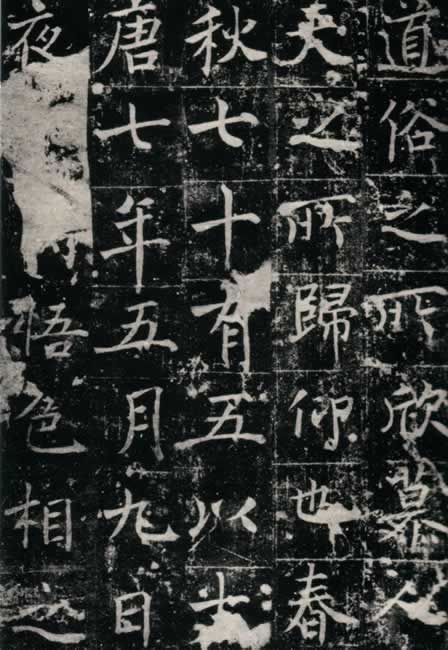 道俗之所欣慕人
天之所歸仰也春
秋七十有五以
唐七年五月九日
夜悟色相之